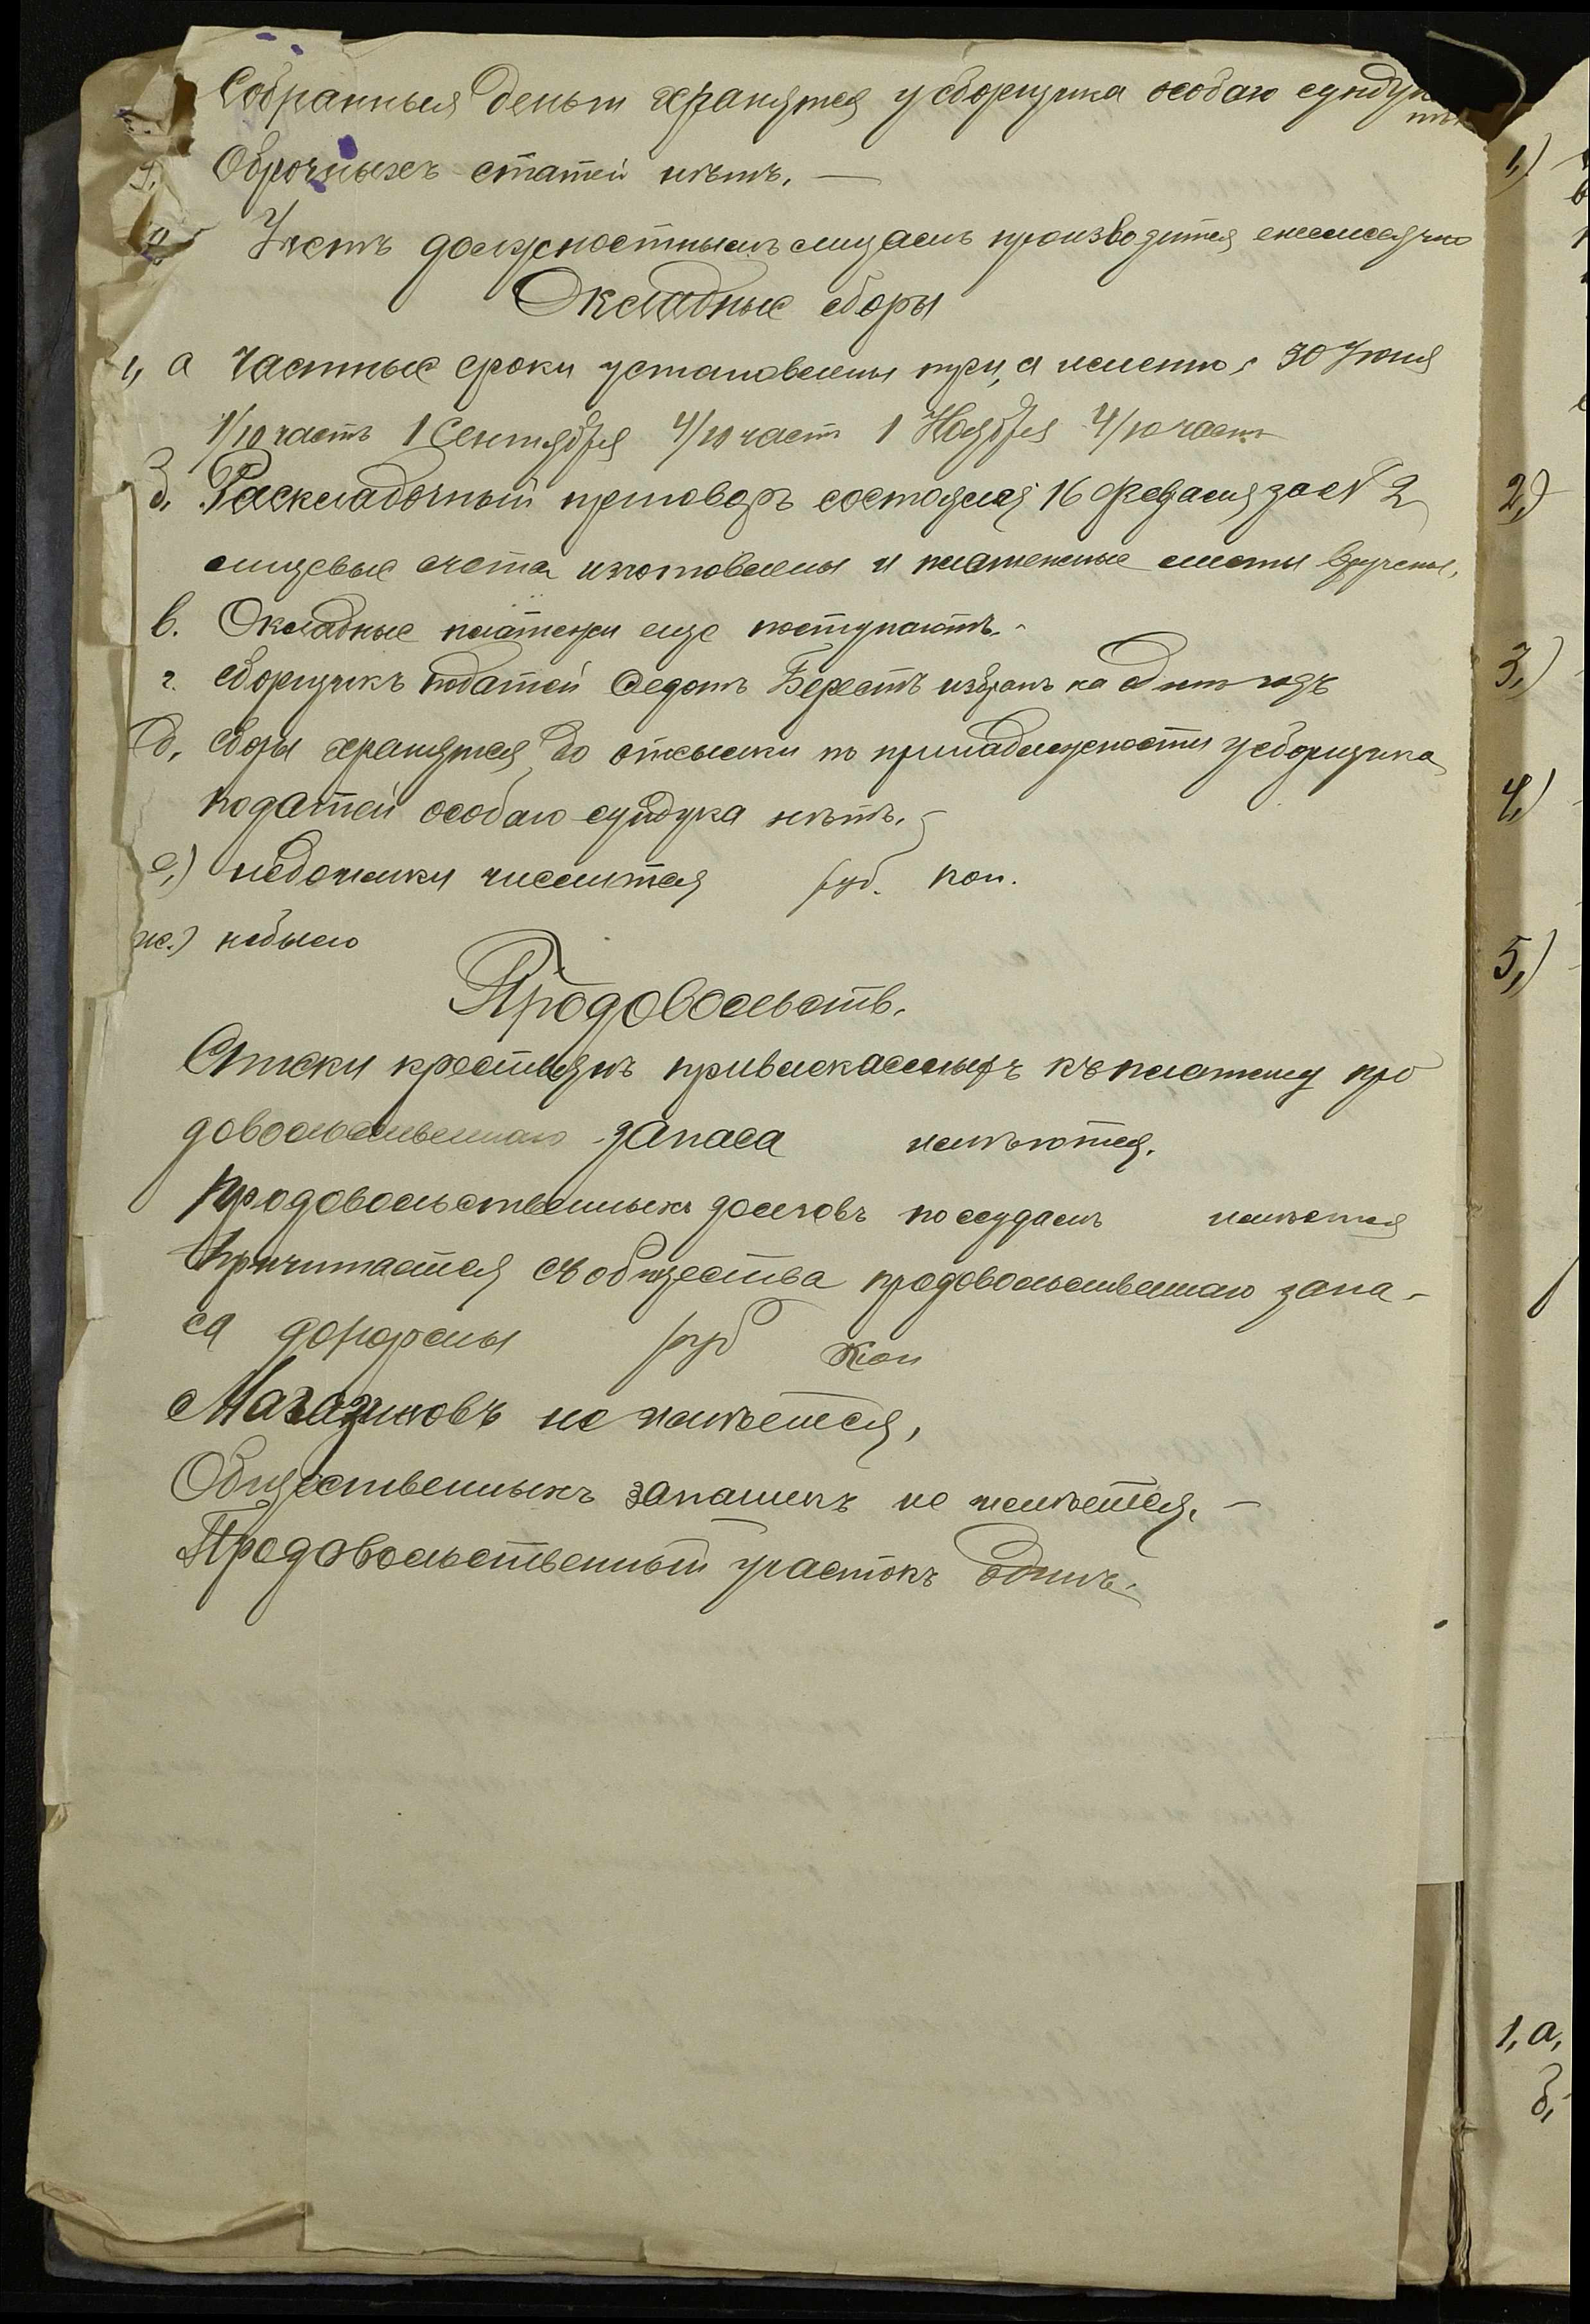 Собранныя деньги хранятся у сборщика особаго сундука
нѣтъ
9, Оброчныхъ статей нѣтъ. —
Учетъ должностнымъ лицамъ производится ежемесячно
Окладные сборы
1, а Частные сроки установлены три, а именно: 30 Іюня
1/10 часть 1 Сентября 4/10 част 1 Ноября 4/10 часть
б, Раскладочный приговоръ состоялся 16 февраля за № 2
лицевые счета изготовлены и платежные листы вручены,
в. Окладные платежи еще поступаютъ.
г. сборщикъ податей Федотъ Берестъ избранъ на один годъ
д, сборы хранятся до отсылки по принадлежности у сборщика
податей особаго сундука нѣтъ.
е,) недоимки числится руб. коп.
ж.) небыло
Продовольств.
Списки крестьянъ привлекаемыхъ къ платежу про
довольственнаго запаса имѣются.
Продовольственныхъ долговъ по ссудамъ имѣется
Причитается съ общества продовольственнаго запа-
са до нормы руб коп
Магазиновъ не имѣется,
Общественныхъ запашекъ не имѣется. —
Продовольственный участокъ одинъ.
1,)
2,)
3,)
4,)
5,)
1, а,
б,